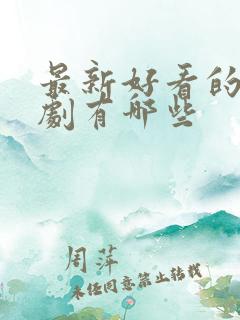 最新好看的
劇有哪些
周萍
未经同意禁止转载